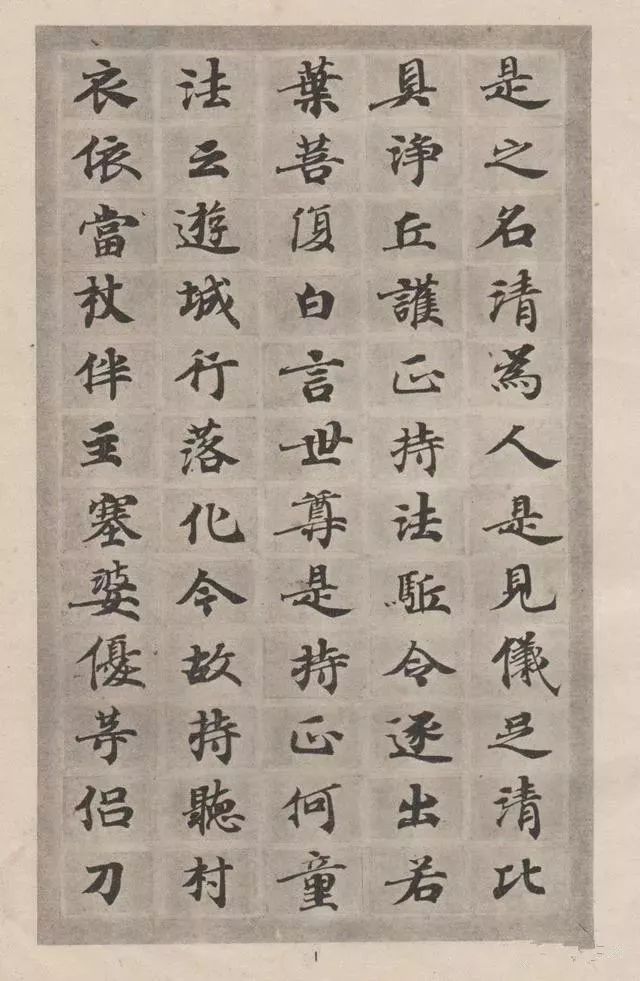 是之名清爲人是見儀足清比
具諍丘護正持法駈令逐出若
葉菩復白言世尊是持正何童
法云遊城行落化令故持聽村
衣依當杖伴主塞婆優等侶刀
1